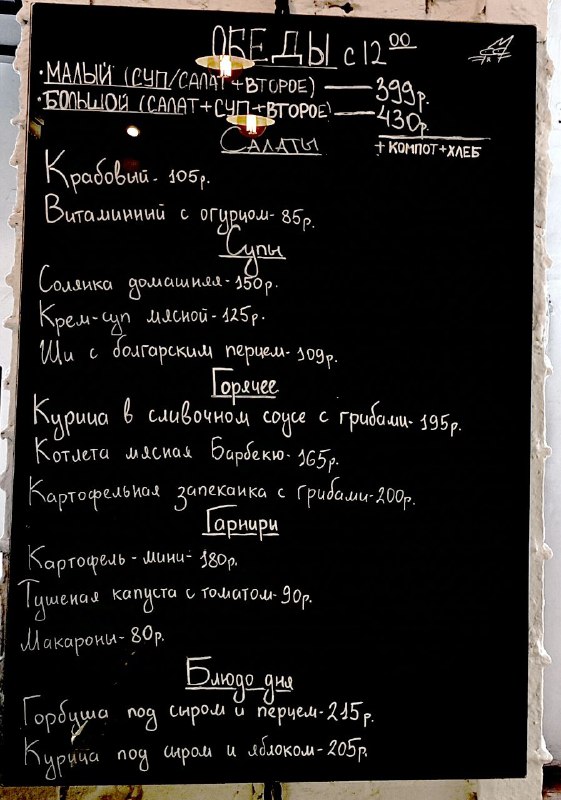 ОБЕДЫ с 12 00
· МАЛЫЙ (СУП/САЛАТ+ВТОРОЕ) — 399р.
· БОЛЬШОЙ (САЛАТ+СУП+ВТОРОЕ) — 430р.
+ КОМПОТ+ХЛЕБ
Салаты
Крабовый - 105р.
Витаминний с огурцом - 85р.
Супы
Солянка домашняя - 150р.
Крем-суп мясной - 125р.
Щи с болгарским перцем - 109р.
Горячее
Курица в сливочном соусе с грибами - 195р.
Котлета мясная Барбекю - 165р.
Картофельная запеканка с грибами - 200р.
Гарнири
Картофель - мини - 180р.
Тушеная капуста с томатом - 90р.
Макароны - 80р.
Блюдо дня
Горбуша под сыром и перцем - 215р.
Курица под сыром и яблоком - 205р.